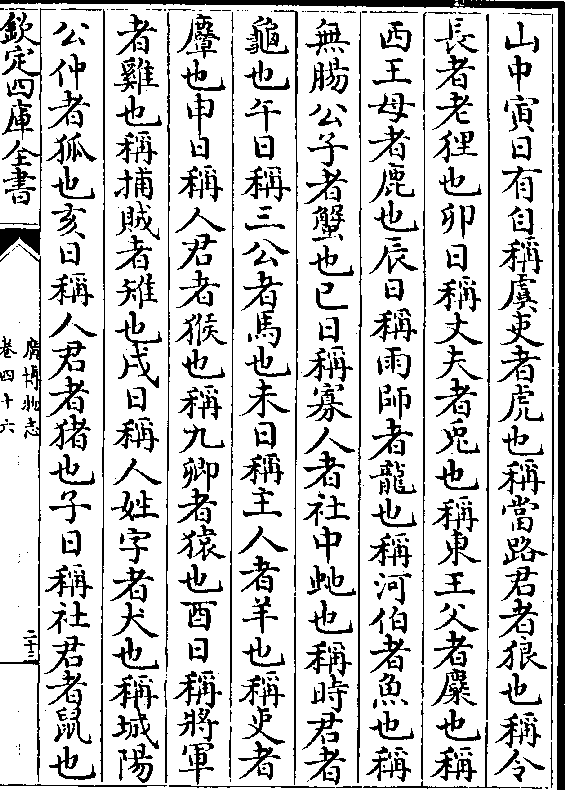 山中寅日有自稱虞吏者虎也稱當路君者狼也稱令
長者老狸也卯日稱丈夫者兎也稱東王父者麋也稱
西王母者鹿也辰日稱雨師者龍也稱河伯者魚也稱
無腸公子者蟹也巳日稱寡人者社中虵也稱時君者
龜也午日稱三公者馬也未日稱主人者羊也稱吏者
麞也申日稱人君者猴也稱九卿者猿也酉日稱將軍
者雞也稱捕賊者雉也戌日稱人姓字者犬也稱城陽
公仲者狐也亥日稱人君者猪也子日稱社君者鼠也
欽定四庫全書
廣博物志
卷四十六
二十三